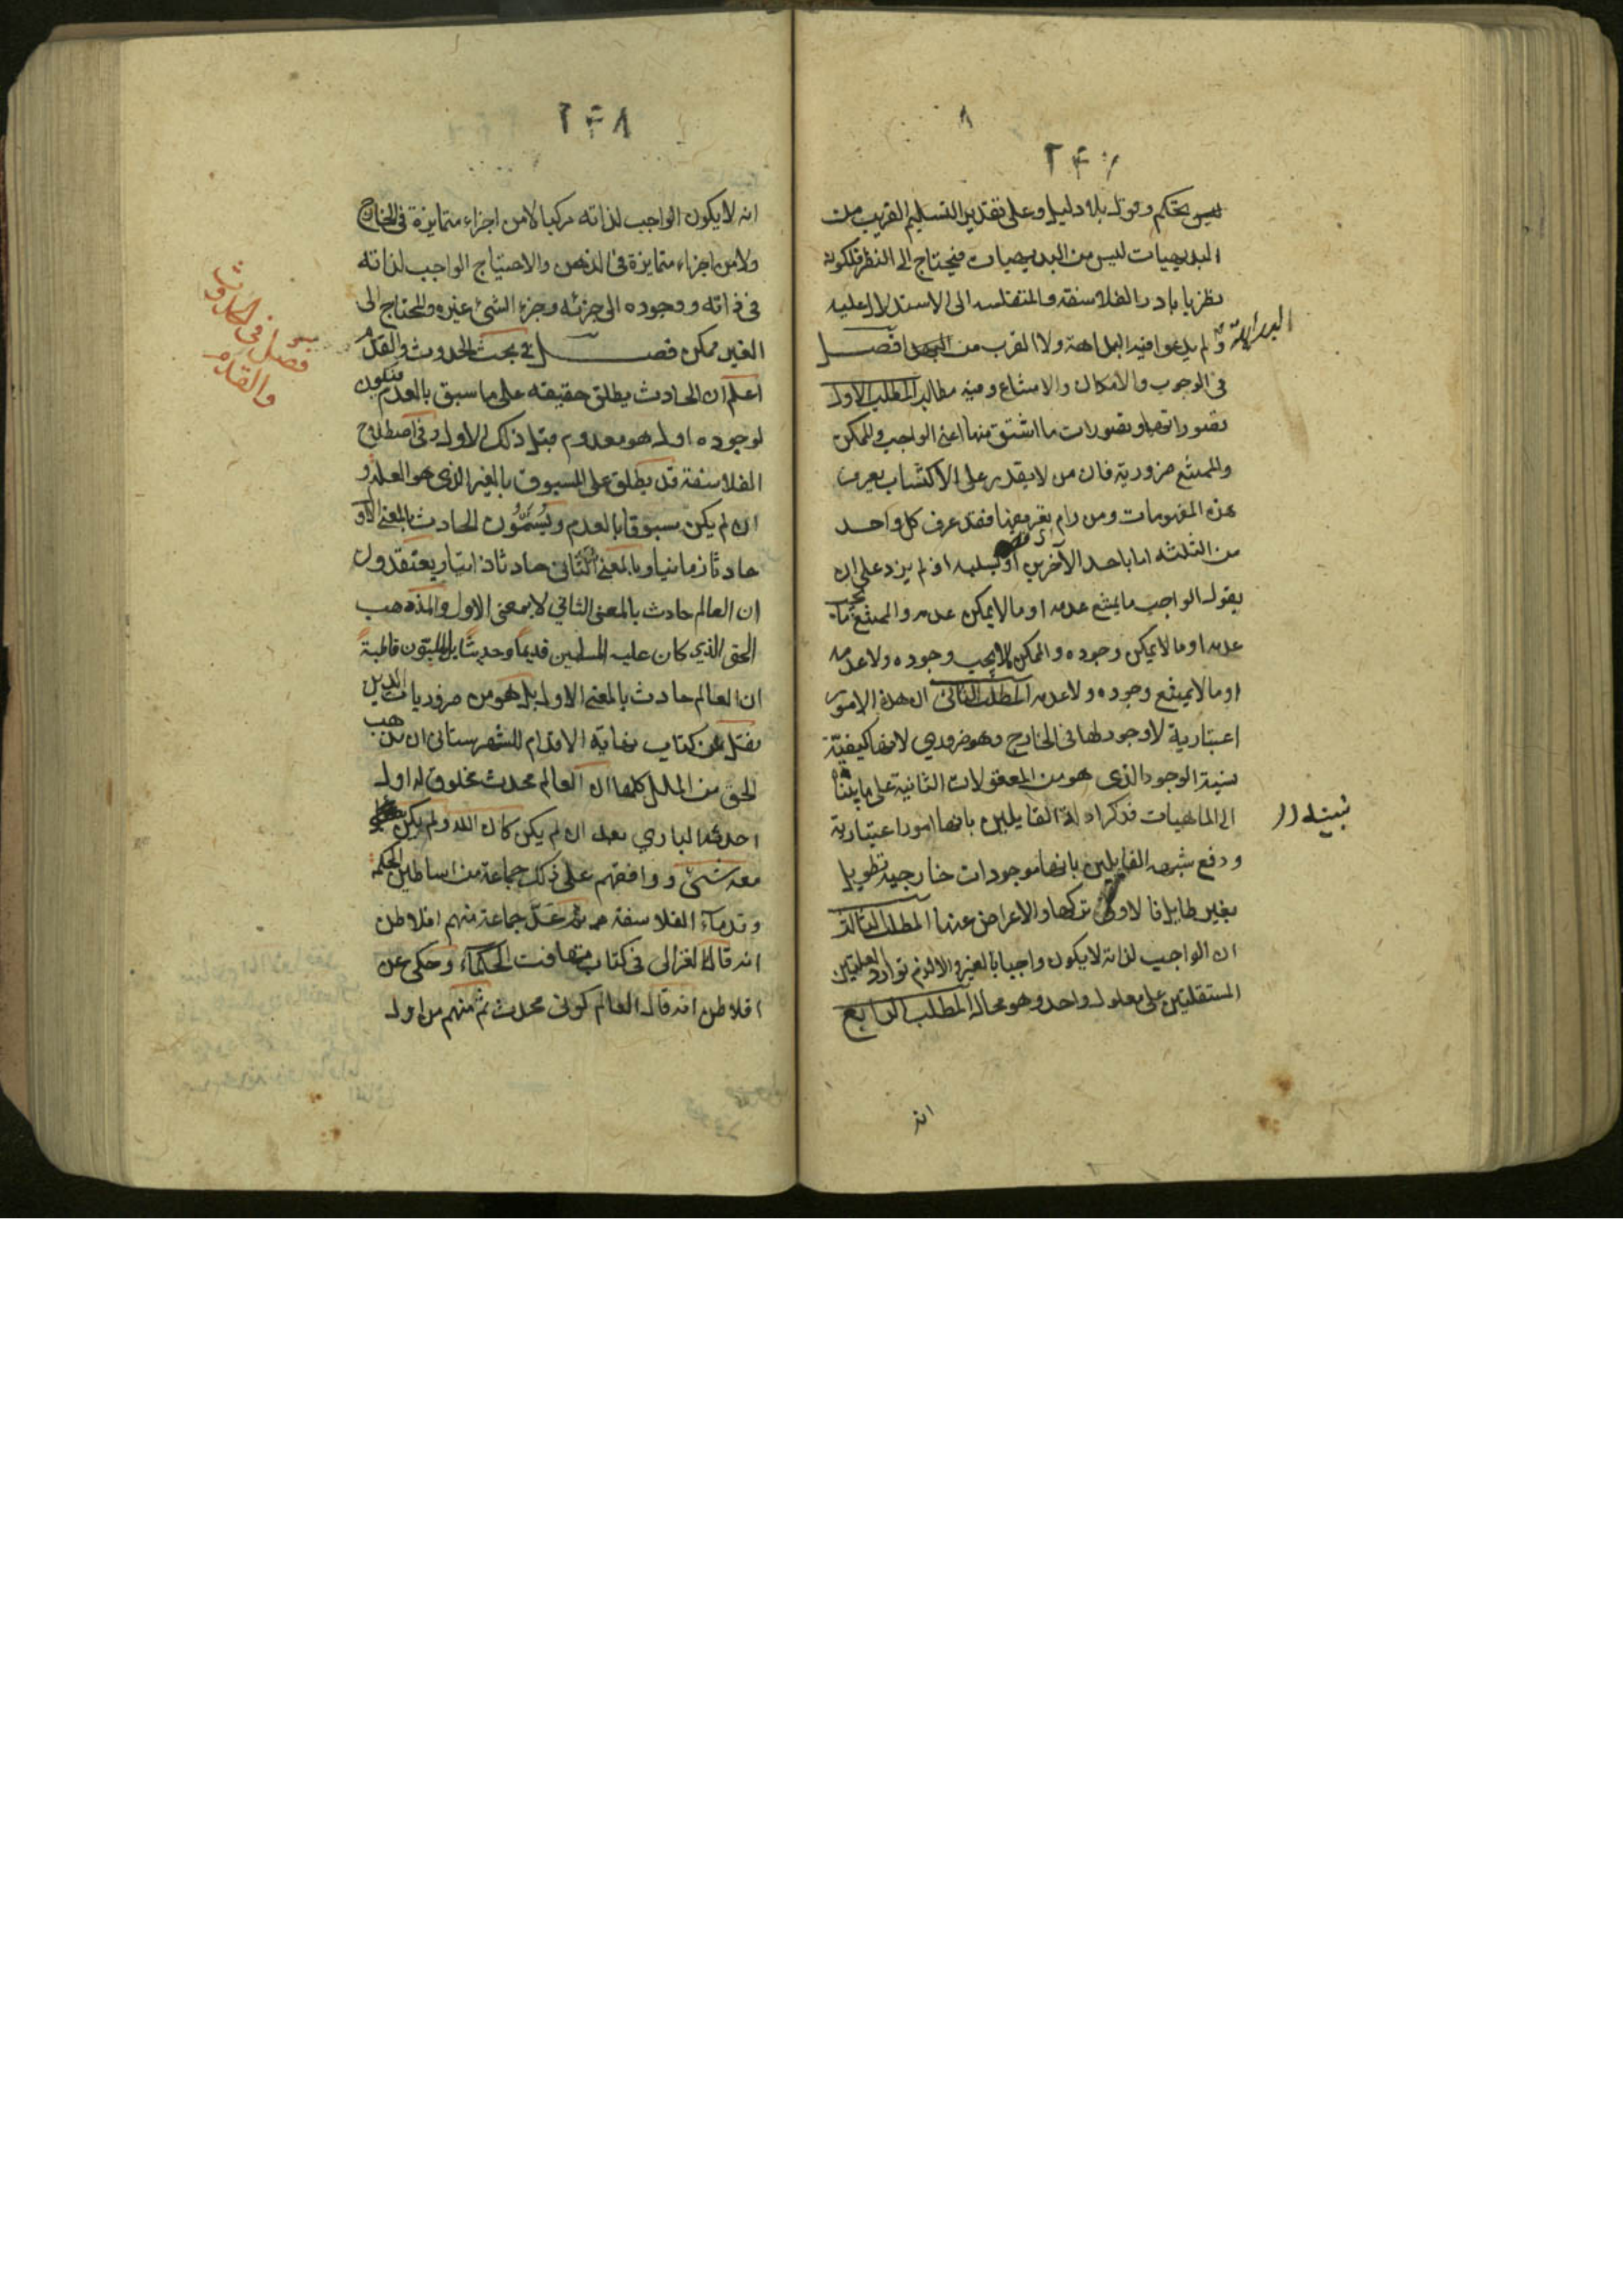 ٨
ليس بتحكم وقول بلا دليل وعلى تقدير التسليم القريب من
البديهيات ليس من البديهيات فيحتاج الى النظر فلكونه
نظريا بادر الفلاسفة والمتفلسفة الى الاستدلال عليه
ولم يدعوا فيه البداهة ولا القرب من البداهة فصل
فى الوجوب والامكان والامتناع وفيه مطالب المطلب الاول
تصوراتها وتصورات ما اشتق منها اعنى الواجب والممكن
والممتنع ضرورية فان من لا يقدر على الاكتساب يعرف
هذه المفهومات ومن رام تعريفها فقد عرف كل واحد
من الثلثة اما باحد الآخرين او بسلبه اذ لم يزد على ان
يقول الواجب ما يمتنع عدمه او ما لا يمكن عدمه والممتنع ما يجب
عدمه او ما لا يمكن وجوده والممكن ما لا يجب وجوده ولا عدمه
او ما لا يمتنع وجوده ولا عدمه المطلب الثانى ان هذه الامور
اعتبارية لا وجود لها فى الخارج وهو ضرورى لانها كيفية
نسبة الوجود الذى هو من المعقولات الثانية على ما بينا
الى الماهيات فذكر ادلة القايلين بانها امور اعتبارية
ودفع شبهه القايلين بانها موجودات خارجية تطويل
بغير طايل فالاولى تركها والاعراض عنها المطلب الثالث
ان الواجب لذاته لا يكون واجبا بالغير والا لزم توارد العلتين
المستقلتين على معلول واحد وهو محال المطلب الرابع
انه
٢٤٨
انه لا يكون الواجب لذاته مركبا لا من اجزاء متمايزة فى الخارج
ولا من اجزاء متمايزة فى الذهن والا احتياج الواجب لذاته
فى ذاته ووجوده الى جزئه وجزء الشئ غيره والمحتاج الى
الغير ممكن فصل فى بحث الحدوث والقدم
اعلم ان الحادث يطلق حقيقة على ما سبق بالعدم فيكون
لوجوده اول هو معدوم قبل ذلك الاول وفى اصطلاح
الفلاسفة قد يطلق على المسبوق بالغير الذى هو العلة و
ان لم يكن مسبوقا بالعدم ويُسَمُّون الحادث بالمعنى الاو
حادثا زمانيا وبالمعنى الثانى حادثا ذاتيا ويعتقدون
ان العالم حادث بالمعنى الثانى لا بمعنى الاول والمذهب
الحق الذى كان عليه المسلمين قديماً وحديثاً بل المليّون قاطبةً
ان العالم حادث بالمعنى الاول بل هو من ضروريات الدين
نقل عن كتاب نهاية الاقدام للشهرستانى ان مذهب
الحق من الملل كلها ان العالم محدث مخلوق له اول
احدثه البارى بعد ان لم يكن كان الله ولم يكن
معه شئ ووافقهم على ذلك جماعة من اساطين الحكمة
وقدمآء الفلاسفة ثم عدّ جماعة منهم افلاطن
انه قال الغزالى فى كتاب تهافت الحكمآء وحكى عن
افلاطن انه قال العالم كونى محدث ثم منهم من اول
فصل فى الحدوث
والقدم